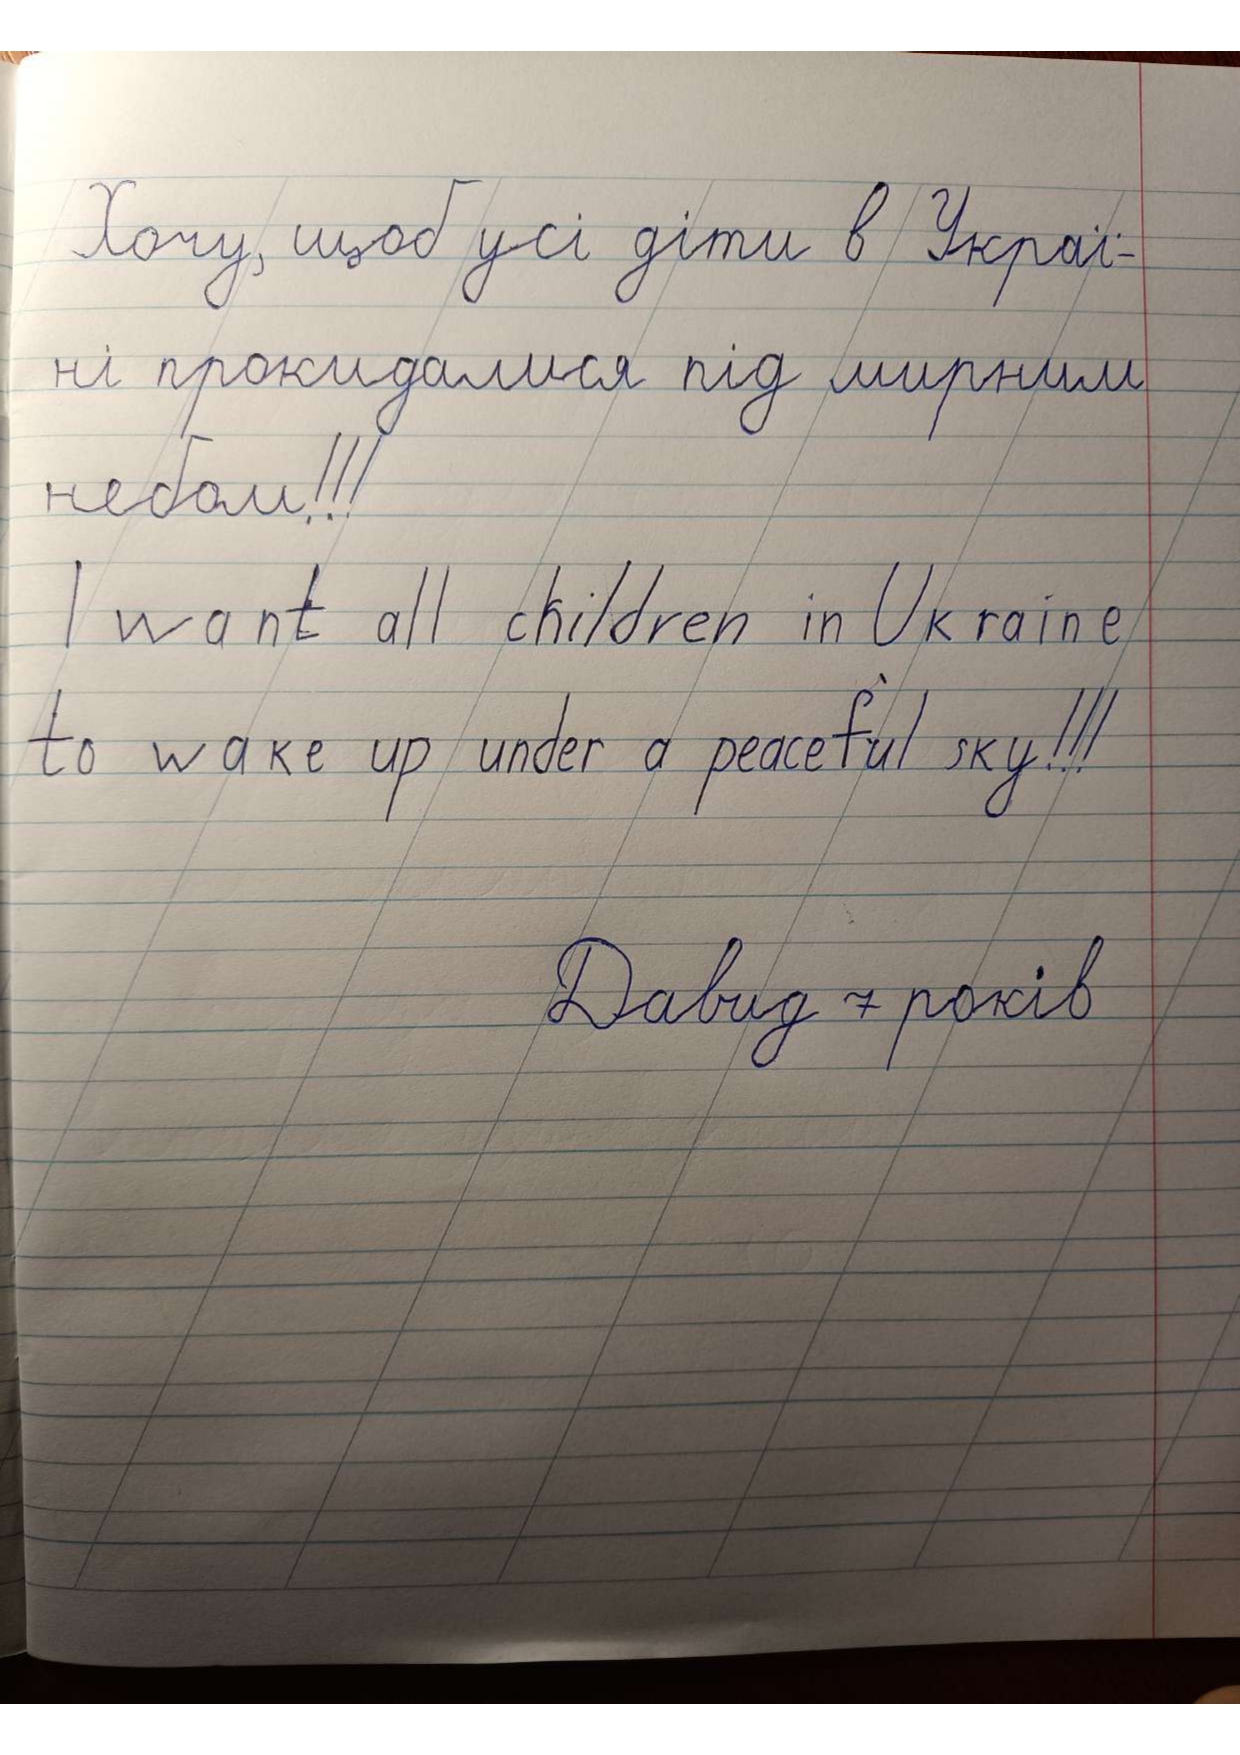 Хочу, щоб усі діти в Украї-
ні прокидалися під мирним
небом!!!
I want all children in Ukraine
to wake up under a peaceful sky!!!
Давид 7 років